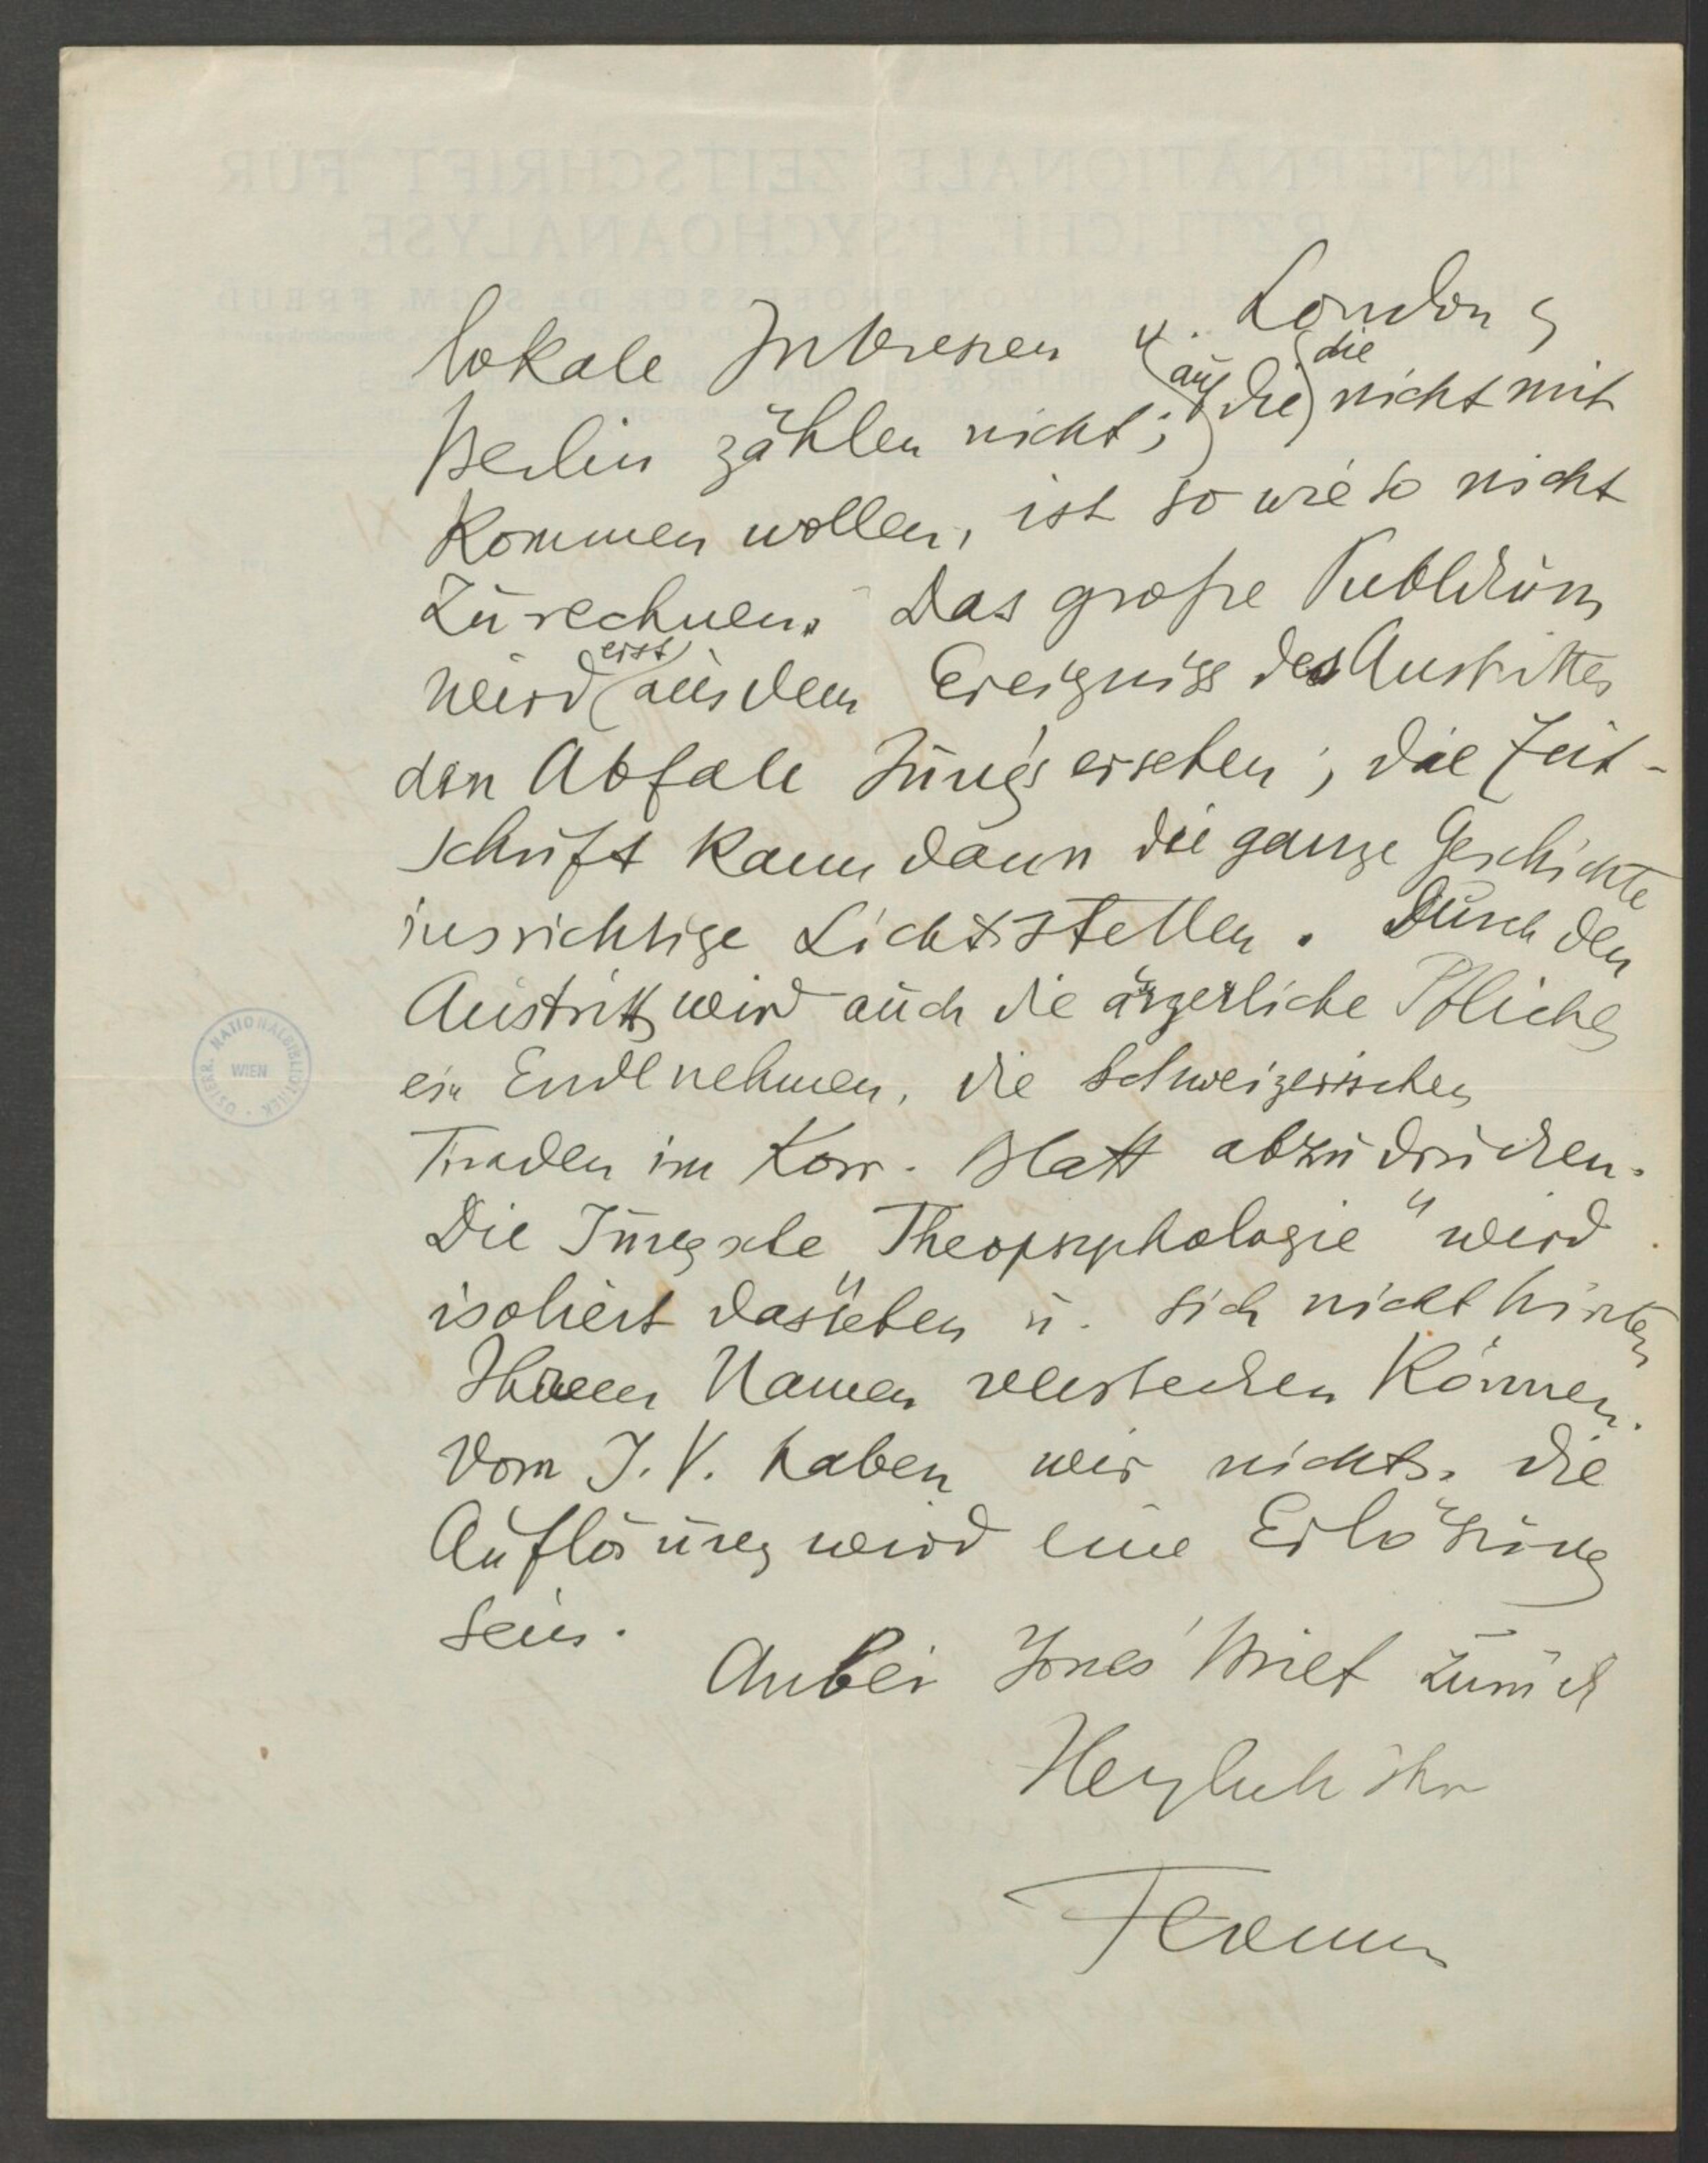 lokale Interessen u. London
Berlin zählen nicht; auf die die nicht mit
kommen wollen, ist so wie so nicht
zu rechnen. Das große Publikum
wird erst aus dem Ereigniss des Austrittes
den Abfall Jung's ersehen; die Zeit-
schrift kann dann die ganze Geschichte
ins richtige Licht stellen. Durch den
Austritt wird auch die ärgerliche Pflicht
ein Ende nehmen, die schweizerischen
Tiraden im Korr. Blatt abzudrucken.
Die Jungsche Theopsychologie" wird
isoliert dastehen u. sich nicht hinter
Ihrem Namen verstecken können.
Vom I. V. haben wir nichts. Die
Auflösung wird eine Erlösung
sein.
Anbei Jones' Brief zurück
Herzlich Ihr
Ferenczi
ÖSTERR. NATIONALBIBLIOTHEK
WIEN
INTERNATIONALE ZEITSCHRIFT FÜR
ÄRZTLICHE PSYCHOANALYSE